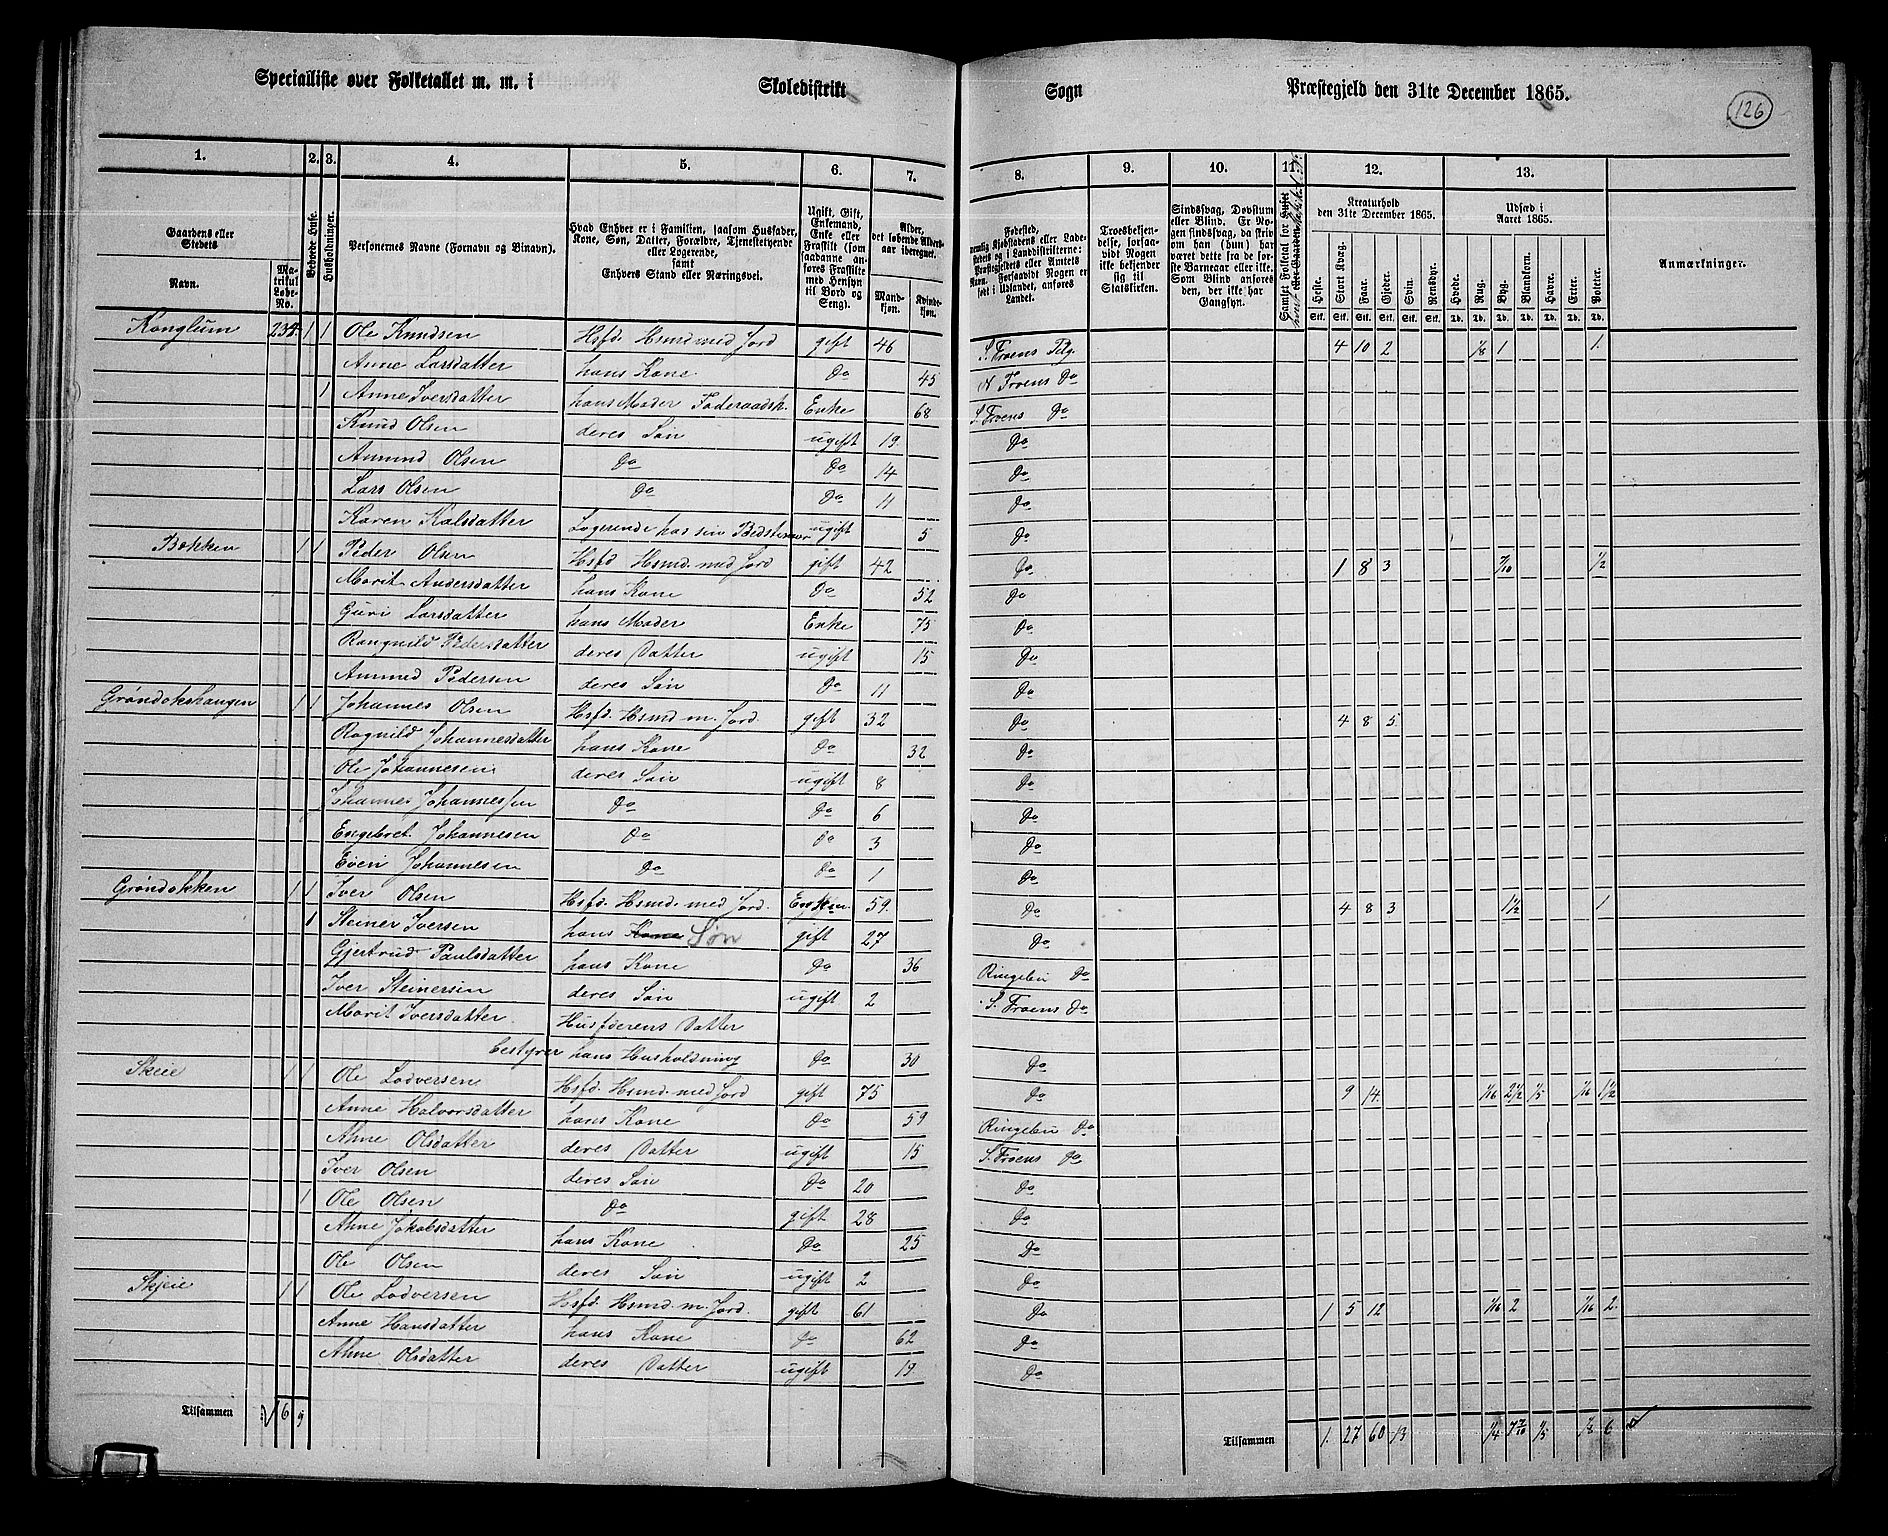 Specialliste over Folketallet m. m. i Skoledistrikt Sogn Præstegjeld den 31te December 1865.
126
1. 2. 3. 4. 5. 6. 7. 8. 9. 10. 11. 12. 13.
Gaardens eller Stedets
Navn.
Matrikul Løbe-No.
Beboede Huse.
Husholdninger.
Personernes Navne (Fornavn og Binavn).
Hvad Enhver er i Familien, saasom Husfader, Kone, Søn, Datter, Forældre, Tjenestetyende eller Logerende, samt Enhvers Stand eller Næringsvei.
Ugift, Gift, Enkemand, Enke eller Fraskilt (som saadanne anføres Fraskilte med Hensyn til Bord og Seng).
Alder, det løbende Aldersaar iberegnet.
Mandkjøn. Kvindekjøn.
Fødested,
Troesbekjendelse, forsaavidt Nogen ikke bekjender sig til Statskirken.
Sindssvag, Døvstum eller Blind. Er Nogen sindssvag, da skrives om han (hun) har været dette fra de første Barneaar eller ikke. Som Blind anføres den, der ikke har Gangsyn.
Kreaturhold den 31te December 1865.
Heste. Stort Kvæg. Faar. Gjeder. Svin. Rensdyr.
Udsæd i Aaret 1865.
Hvede. Rug. Byg. Blandkorn. Havre. Erter. Poteter.
Anmærkninger.
Konglum 234. 1 1 Ole Knudsen Hsfd. Hsmd med Jord gift 46 S. Froens Pdg. 4 10 2 1/8 1 1.
Anne Larsdatter hans Kone Do 45 N Froens Do
1 Anne Iversdatter hans Moder Føderaadsk. Enke 68 S. Froens Do
Knud Olsen deres Søn ugift 19. Do
Amund Olsen Do Do 14 Do
Lars Olsen Do Do 11 Do
Karen Kalsdatter Logerende hos sin Bedstemor ugift 5 Do
Bakken 1 1 Peder Olsen Hsfd Hsmd. med Jord gift 42 Do 1 8 3 7/10 1/2
Marit Andersdatter hans Kone Do 52 Do
Guri Larsdatter hans Moder Enke 75 Do
Rangnild Pedersdatter deres Datter ugift 15 Do
Ammed Pedersen deres Søn Do 11 Do
Grøndokshaugen 1 1 Johannes Olsen Hsfd. Hsmd m. Jord. gift 32 Do 4 8 5
Ragnild Johannesdatter hans Kone Do 32 Do
Ole Johannesen deres Søn ugift 8 Do
Johannes Johannessen Do Do 6 Do
Engebret Johannesen Do Do 3 Do
Even Johannesen Do Do 1 Do
Grøndokken 1 1 Iver Olsen Hsfd. Hsmd. med Jord. Enkem. 59. Do 4 8 3 1 1/2 1
1 Steiner Iversen hans Kone Søn gift 27 Do
Gjertrud Paulsdatter hans Kone Do 36 Ringebu Do
Iver Steinersen deres Søn ugift 2 S. Froens Do
Marit Iversdatter Husfderens Datter
bestyrer hans Husholdning Do 30 Do
Skeie 1 1 Ole Lodversen Hsfd. Hsmd. med Jord gift 75 Do 9 14 1/16 2 1/2 1/5 1/16 1 1/2
Anne Halvorsdatter hans Kone Do 59 Ringebu Do
Ahne Olsdatter deres Datter ugift 15 S. Froens Do
Iver Olsen deres Søn Do 20 Do
1 Ole Olsen Do gift 28 Do
Ahne Jakobsdatter hans Kone Do 25 Do
Ole Olsen deres Søn ugift 2 Do
Skjeie 1 1 Ole Lodversen Hsfd. Hsmd. m. Jord. gift 61 Do 1 5 12 1/16 2 1/16 2.
Anne Hansdatter hans Kone Do 62 Do
Ahne Olsdatter deres Datter ugift 19 Do
Tilsammen 6 9 Tilsammen 1. 27 60 13 1/4 7 7/10 1/5 1/8 6